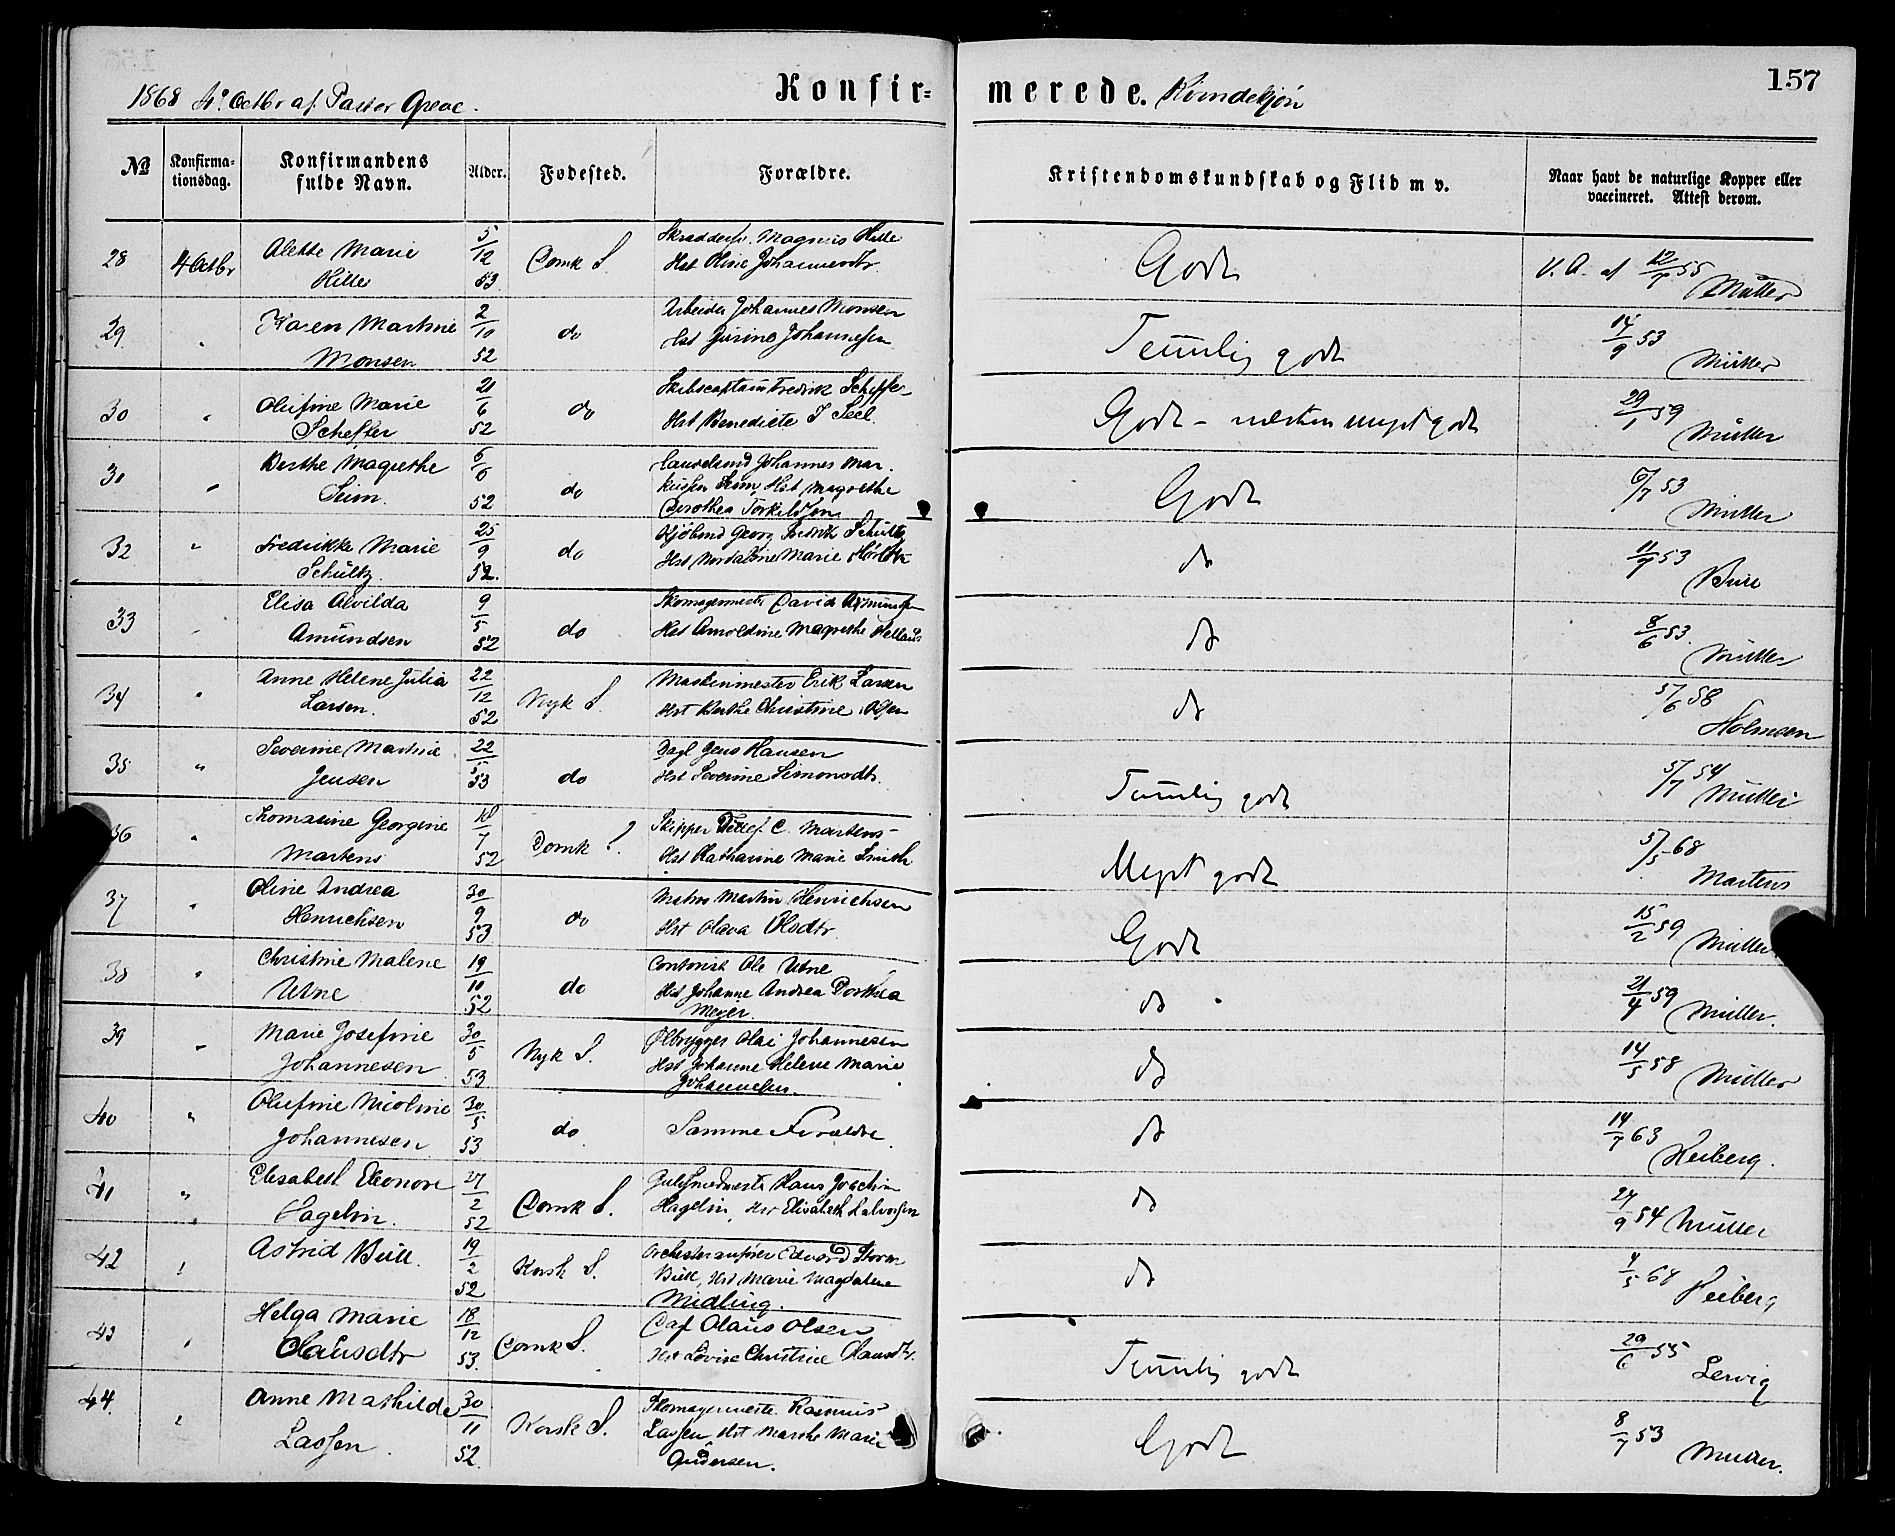 1868 4de Octbr af Pastor Greve. Konfir= merede. Kvindekjøn 157
No Konfirma-tionsdag. Konfirmandens fulde Navn. Alder. Fødested. Forældre. Kristendomskundskab og Flid m v. Naar havt de naturlige Kopper eller vaccineret. Attest derom.
28 4 Octbr Alette Marie Hille 5/12 53 Domk S. Skræddersv. Magnus Hille Hst Oline Johannesdtr. Godt V. A. af 12/9 55 Müller
29 " Karen Martine Monsen 2/10 52 do Arbeider Johannes Monsen Hst Jurine Johannesen Temmelig godt 14/9 53 Müller
30 " Olufine Marie Schefter 21/6 52 do Skibscaptain Fredrik Schefter Hst Benedicte J Seel. Godt - næsten meget godt 29/1 59 Müller
30 " Berthe Magrethe Seim. 6/6 52 do Johannes Markussen Seim, Hst Magrethe Dorothea Torkildsen Godt 6/7 53 Müller
32 " Fredrikke Marie Schultz. 25/9 52. do Kjøbmd Georg Fredrik Schultz Hst Marie do 11/9 53 Bull
33 " Elisa Alvilda Amundsen 9/5 52 do Skomagermester David Amundsen Hst Arnoldine Magrethe do 8/6 53. Müller
34 " Anne Helene Julia Larsen. 22/12 52 Nyk S. Maskinmester Erik Larsen Hst Berthe Christine Olsen do 5/6 58 Holmsen
35 " Severine Martine Jensen 22/5 53 do Dagl Jens Hansen Hst Severine Simonsdtr. Temmelig godt 5/7 54 Müller
36 " Thomasine Georgine Martens 18/7 52 Domk S. Skipper Detlef C. Martens Hst Katharine Marie Smith Meget godt 5/5 68 Martens
37 " Oline Andrea Henrichsen 30/9 53 do Matros Martin Henrichsen Hst Olava Olsdtr. Godt 15/2 59 Müller
38 " Christine Malene Utne 19/10 52 do Contorist Ole Utne Hst Johanne Andrea Dorthea Meyer. do 21/4 59 Müller.
39 " Marie Josefine Johannesen 30/5 53 Nyk S. Ølbrygger Olai Johannesen Hst Johanne Helene Marie Johannesen. do 14/5 58 Müller
40 " Olufine Nicoline Johannesen 30/5 53 do Samme Forældre do 14/7 63 Heiberg.
41 " Elisabeth Eleonore Hagelin. 27/2 52 Domk S. Guldsmedmester Hans Joachim Hagelin, Hst Elisabeth Halvorsen do 27/9 54 Müller
42 " Astrid Bull. 19/2 52 Korsk S. Orchesteranfører Edvard Storm Bull, Hst Marie Magdalene Midling. do 4/5 68 Heiberg
43 " Helga Marie Olausdtr 18/12 53. Domk S. Dagl Olaus Olsen Hst Lovise Christine Hansdtr. Temmelig godt 20/6 55 Lervig
44. " Anne Mathilde Lassen. 30/11 52. Korsk S. Skomagermester Rasmus Lassen, Hst Marthe Marie Andersen. Godt 8/7 53 Müller.